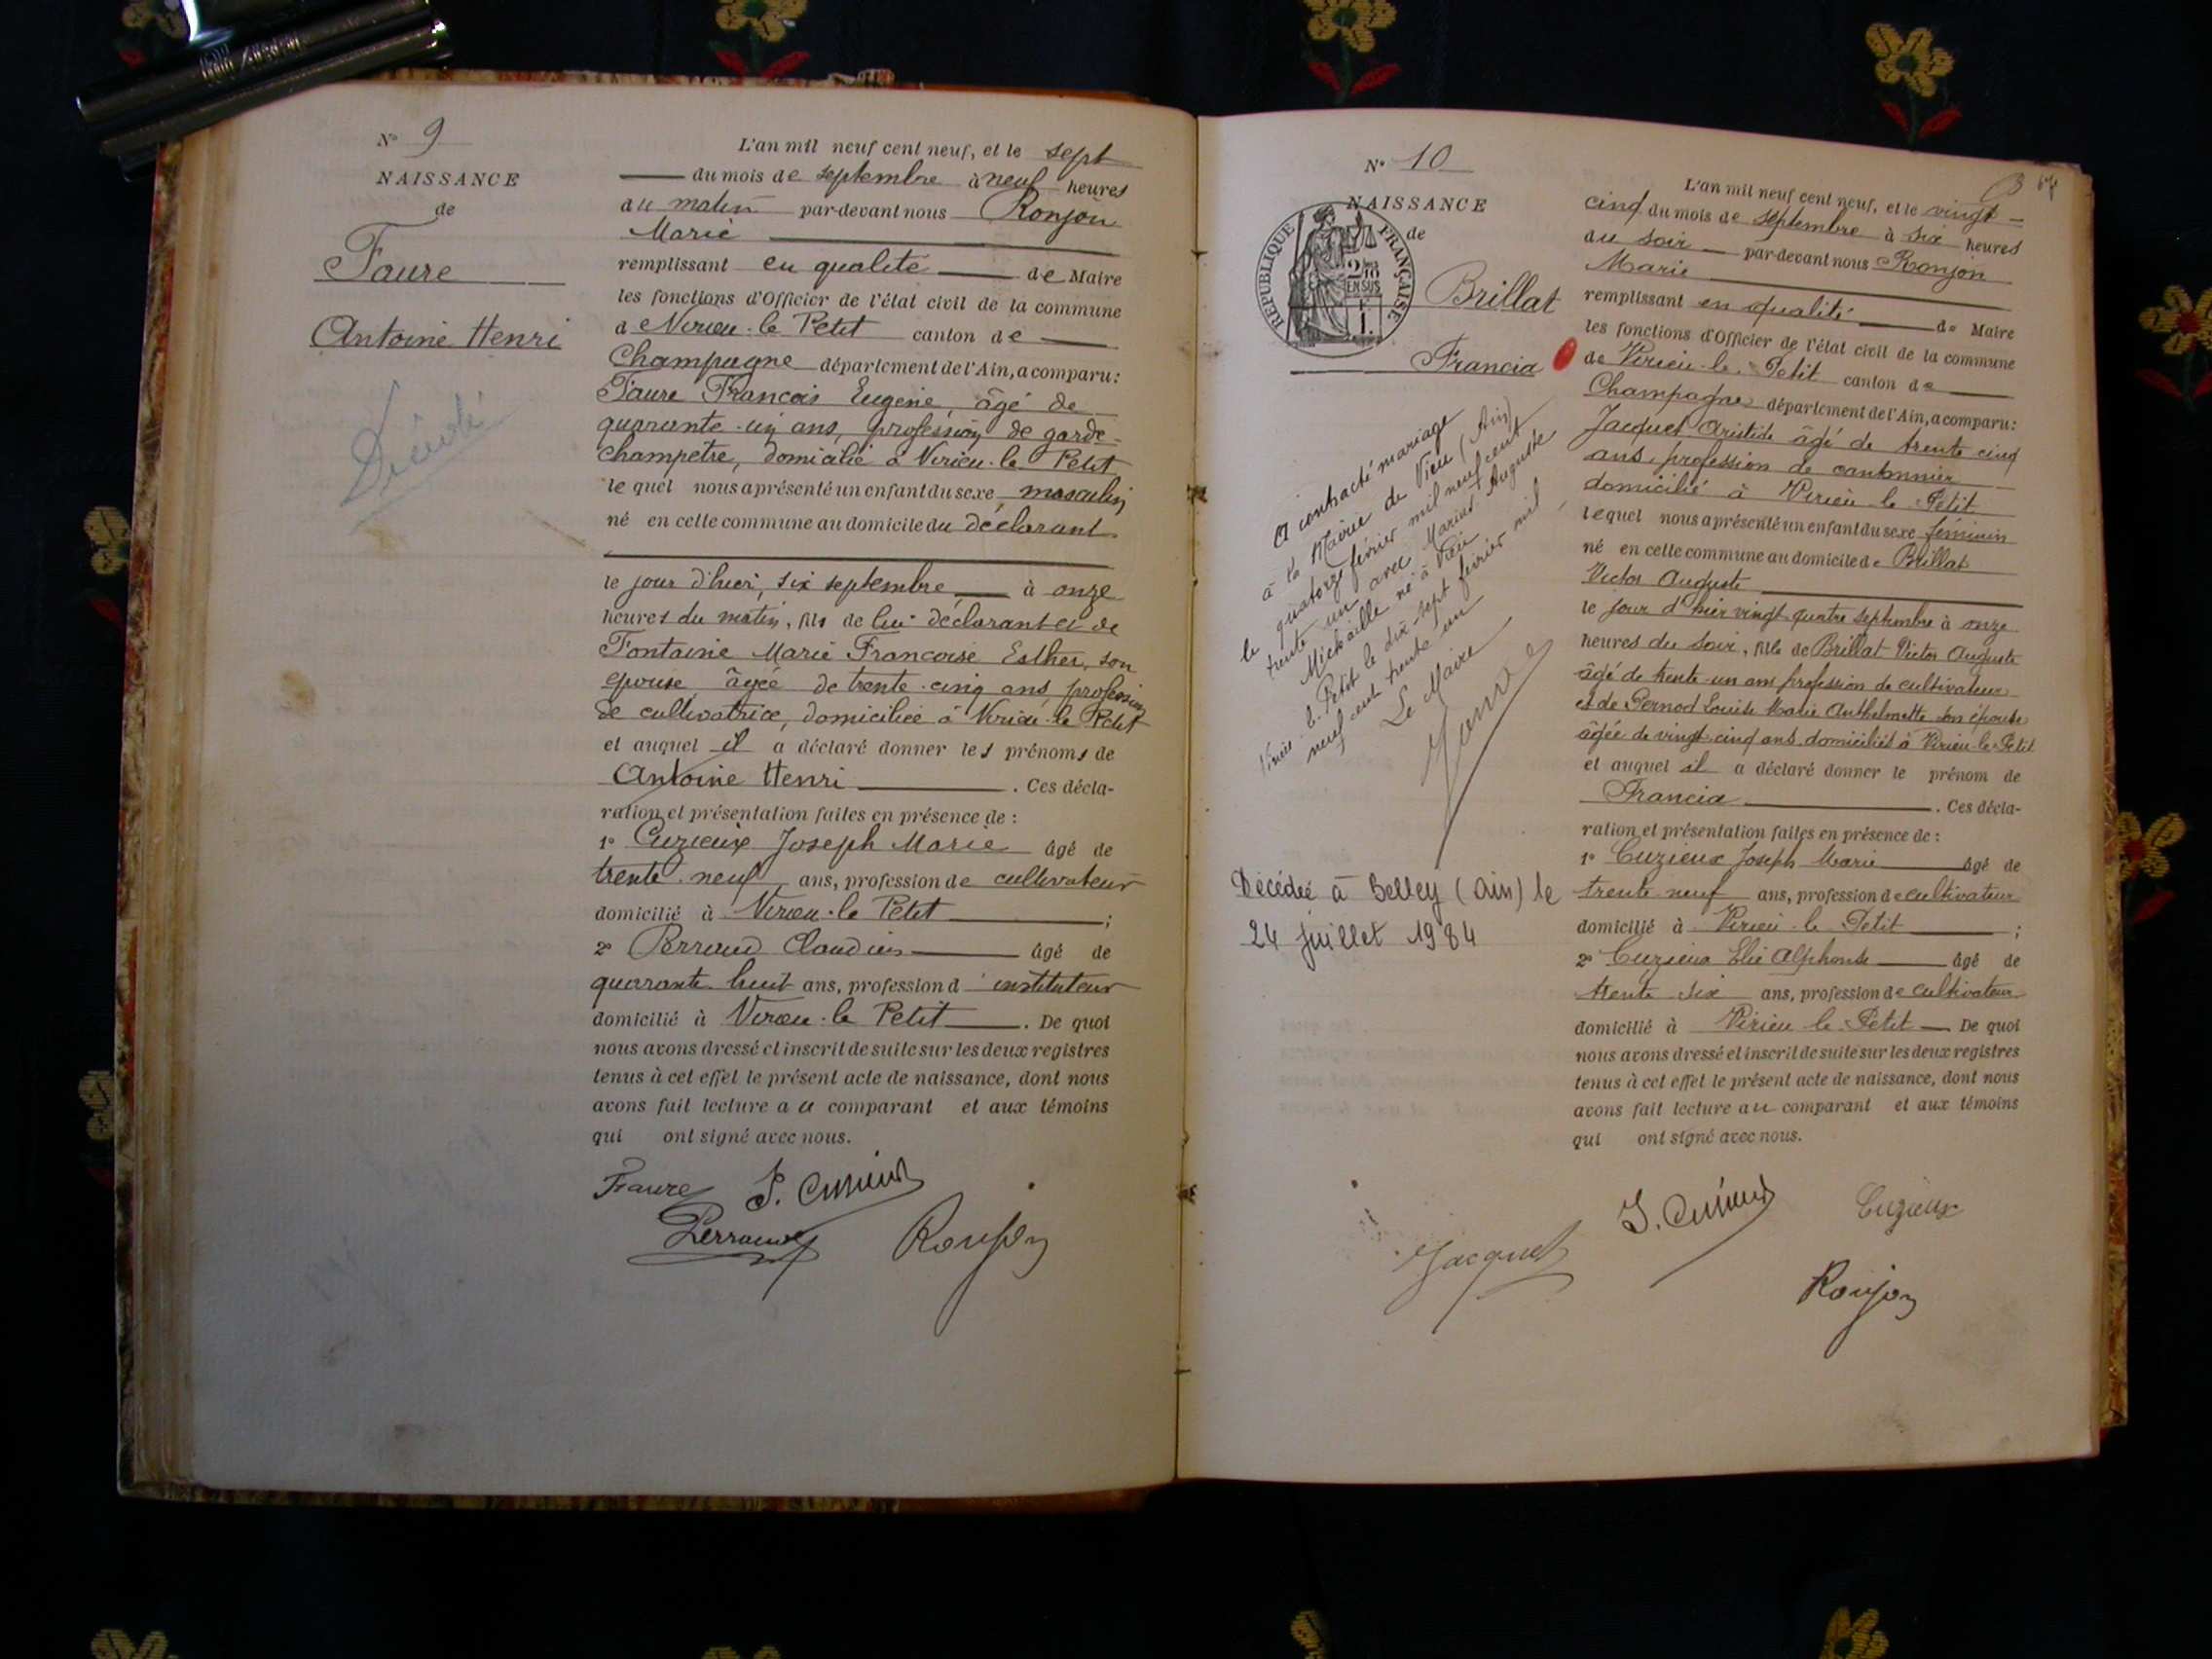 N° 9
NAISSANCE
de
Faure
Antoine Henri
Décédé
L'an mil neuf cent neuf, et le sept
du mois de septembre à neuf heures
du matin par-devant nous Ronjon
Marie
remplissant en qualité de Maire
les fonctions d'Officier de l'état civil de la commune
de Virieu-le Petit canton de
Champagne département de l'Ain, a comparu:
Faure François Eugène, âgé de
quarante-un ans, profession de garde-
champetre, domicilié à Virieu-le Petit
lequel nous a présenté un enfant du sexe masculin
né en cette commune au domicile du déclarant
le jour d'hier, six septembre à onze
heures du matin, fils de lui déclarant et de
Fontaine Marie Françoise Esther, son
epouse, âgée de trente-cinq ans, profession
de cultivatrice, domiciliée à Virieu-le Petit
et auquel il a déclaré donner les prénoms de
Antoine Henri. Ces décla-
ration et présentation faites en présence de :
1° Cuzieux Joseph Marie âgé de
trente-neuf ans, profession de cultivateur
domicilié à Virieu-le Petit ;
2° Perraud Claudius âgé de
quarante-huit ans, profession d'instituteur
domicilié à Virieu-le Petit. De quoi
nous avons dressé et inscrit de suite sur les deux registres
tenus à cet effet le présent acte de naissance, dont nous
avons fait lecture au comparant et aux témoins
qui ont signé avec nous.
Faure J. Cuzieux
Perraud Ronjon
N° 10
NAISSANCE
de
RÉPUBLIQUE FRANÇAISE
2/10
EN SUS
Brillat
Francia
A contracté mariage
à la Mairie de Vieu (Ain)
le quatorze février mil neuf cent
trente un avec Marius Auguste
Michaille né à Vieu
Virieu-le-Petit le dix-sept février mil
neuf cent trente un
Le Maire
Décédée à Belley (Ain) le
24 juillet 1984
67
L'an mil neuf cent neuf, et le vingt-
cinq du mois de septembre à six heures
du soir par-devant nous Ronjon
Marie
remplissant en qualité de Maire
les fonctions d'Officier de l'état civil de la commune
de Virieu-le-Petit canton de
Champagne département de l'Ain, a comparu:
Jacquet Aristide âgé de trente cinq
ans, profession de cantonnier
domicilié à Virieu le Petit
lequel nous a présenté un enfant du sexe féminin
né en cette commune au domicile de Brillat
Victor Auguste
le jour d'hier vingt quatre septembre à onze
heures du soir, fille de Brillat Victor Auguste
âgé de trente-un ans profession de cultivateur
et de Pernod Louise Marie Anthelmette son épouse
âgée de vingt-cinq ans domiciliés à Virieu-le-Petit
et auquel il a déclaré donner le prénom de
Francia. Ces décla-
ration et présentation faites en présence de :
1° Cuzieux Joseph Marie âgé de
trente neuf ans, profession de cultivateur
domicilié à Virieu-le Petit ;
2° Cuzieux Elie Alphonse âgé de
trente six ans, profession de cultivateur
domicilié à Virieu le Petit De quoi
nous avons dressé et inscrit de suite sur les deux registres
tenus à cet effet le présent acte de naissance, dont nous
avons fait lecture au comparant et aux témoins
qui ont signé avec nous.
J. Cuzieux Cuzieux
Jacquet
Ronjon